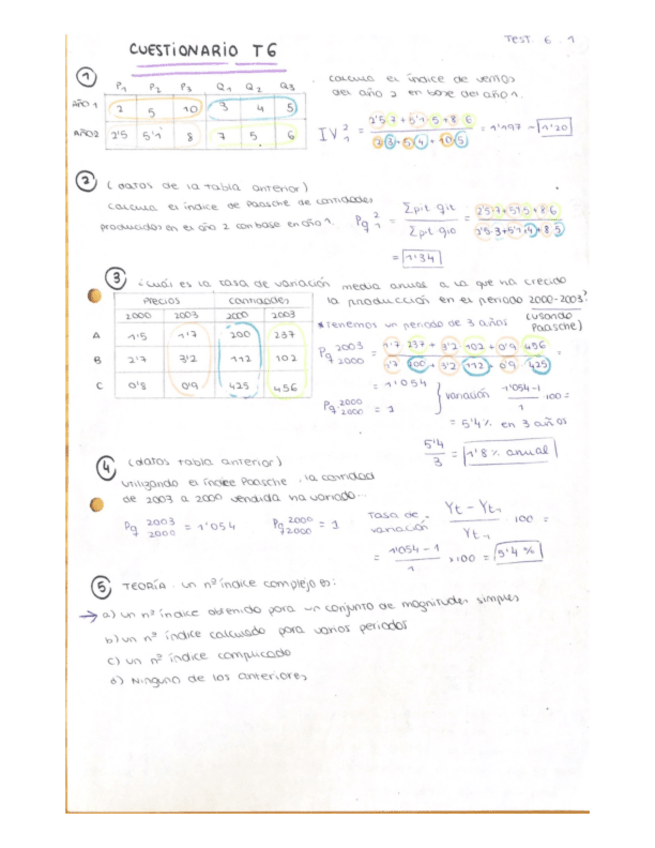 TEST. 6. 1
CUESTIONARIO T6
1
P1 P2 P3 Q1 Q2 Q3
AÑO 1 2 5 10 3 4 5
AÑO2 2'5 5'1 8 7 5 6
calcula el índice de ventas
del año 2 en base del año 1.
IV 2 1 = 2'5·7 + 5'1·5 + 8·6 / 2·3 + 5·4 + 10·5 = 1'197 ~ 1'20
2 (datos de la tabla anterior)
calcula el índice de Paasche de cantidades
producidas en el año 2 con base en año 1.
Pq 2 1 = Σpit qit / Σpit qio = 2'5·7 + 5'1·5 + 8·6 / 2'5·3 + 5'1·4 + 8·5
= 1'34
3 ¿cuál es la tasa de variación media anual a la que ha crecido
la producción en el periodo 2000-2003?
(usando Paasche)
Precios cantidades
2000 2003 2000 2003
A 1'5 1'7 200 237
B 2'7 3'2 112 102
C 0'8 0'9 425 456
*Tenemos un periodo de 3 años
Pq 2003 2000 = 1'7·237 + 3'2·102 + 0'9·456 / 1'7·200 + 3'2·112 + 0'9·425 =
= 1'054
Pq 2000 2000 = 1
variación 1'054-1 / 1 · 100 =
= 5'4% en 3 años
5'4 / 3 = 1'8% anual
4 (datos tabla anterior)
utilizando el índice Paasche, la cantidad
de 2003 a 2000 vendida ha variado...
Pq 2003 2000 = 1'054 Pq 2000 2000 = 1
Tasa de variación Yt - Yt-1 / Yt-1 · 100 =
= 1'054 - 1 / 1 × 100 = 5'4%
5 TEORÍA. un nº índice complejo es:
→ a) un nº índice obtenido para un conjunto de magnitudes simples
b) un nº índice calculado para varios periodos
c) un nº índice complicado
d) Ninguno de los anteriores